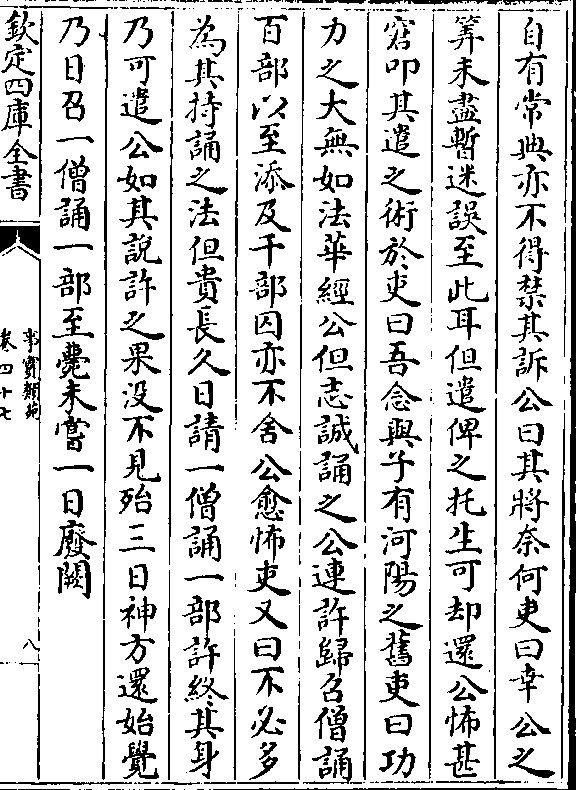 自有常典亦不得禁其訴公曰其將奈何吏曰幸公之
筭未盡暫迷誤至此耳但遣俾之托生可却還公怖甚
窘叩其遣之術於吏曰吾念與子有河陽之舊吏曰功
力之大無如法華經公但志誠誦之公連許歸召僧誦
百部以至添及千部囚亦不舍公愈怖吏又曰不必多
為其持誦之法但貴長久日請一僧誦一部許終其身
乃可遣公如其說許之果没不見殆三日神方還始覺
乃日召一僧誦一部至薨未嘗一日廢闕
欽定四庫全書
事實類苑
卷四十七
八